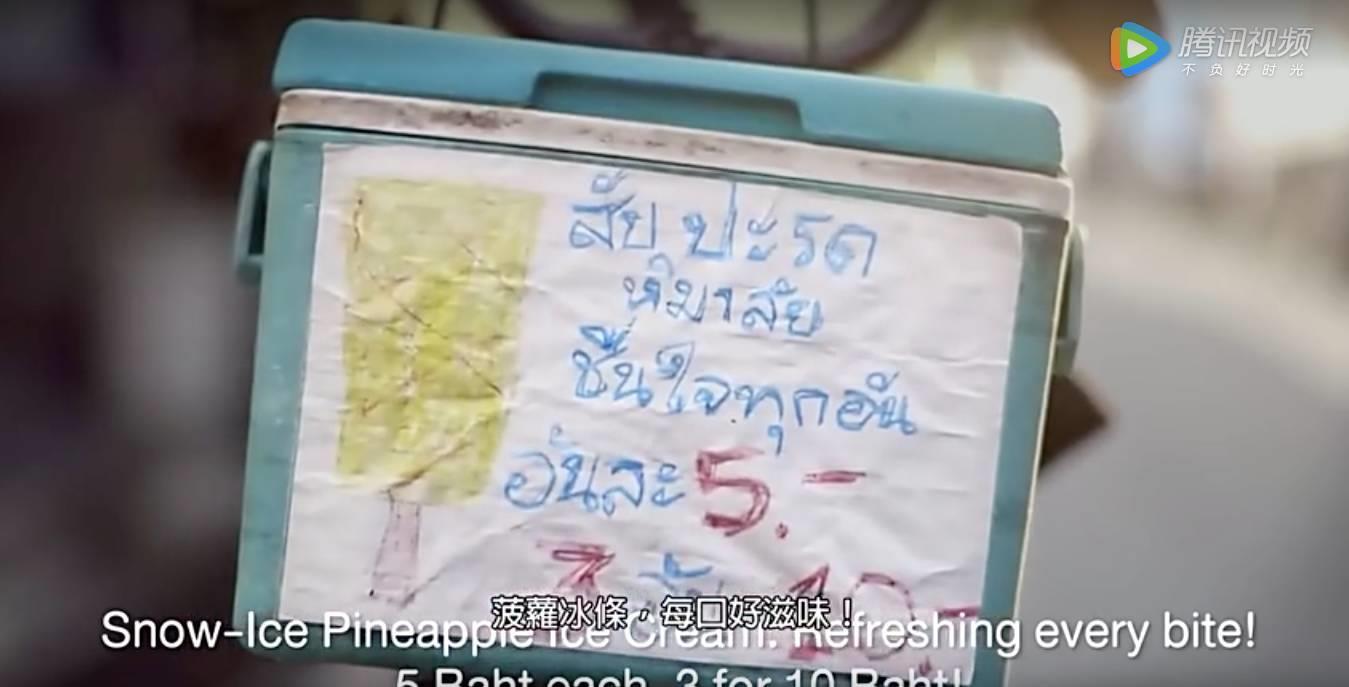 腾讯视频
不负好时光
สับปะรด
หิมาลัย
ชื่นใจทุกอัน
อันละ 5.-
3 อัน 10.-
菠蘿冰條，每口好滋味！
Snow-Ice Pineapple Ice Cream. Refreshing every bite!
5 Baht each, 3 for 10 Baht!